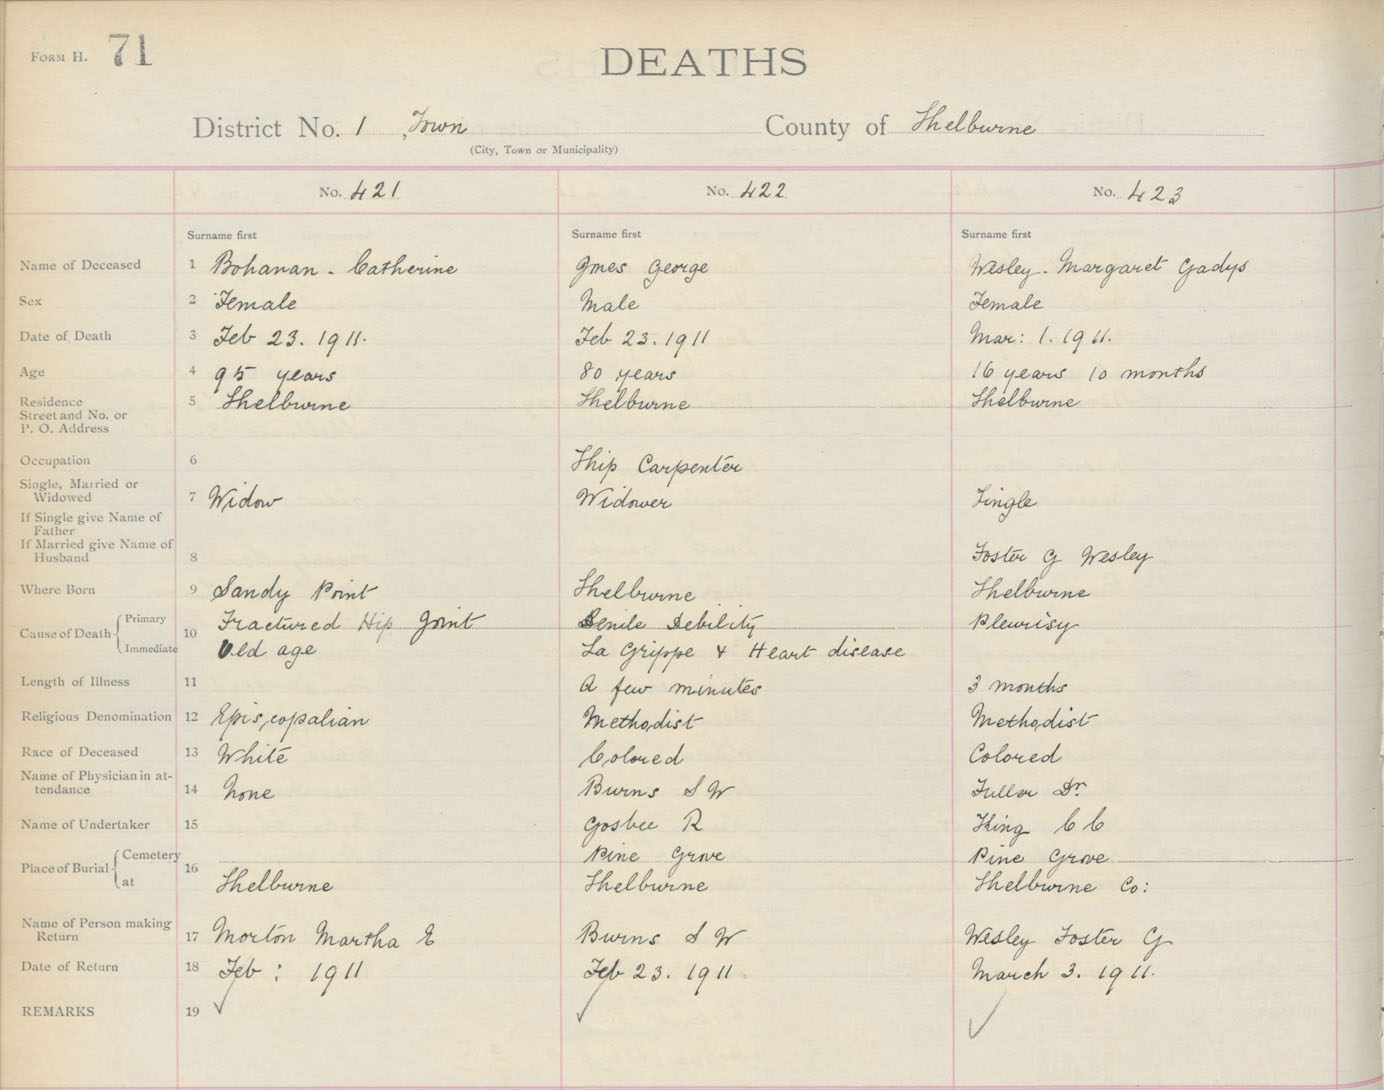 FORM H. 71
DEATHS
District No. 1, Town County of Shelburne
(City, Town or Municipality)
No. 421 No. 422 No. 423
Surname first Surname first Surname first
Name of Deceased 1 Bohanan - Catherine George Wesley - Margaret Gadys
Sex 2 Female Male Female
Date of Death 3 Feb 23. 1911. Feb 23. 1911 Mar: 1. 1911.
Age 4 95 years 80 years 16 years 10 months
Residence 5 Shelburne Shelburne Shelburne
Street and No. or
P. O. Address
Occupation 6 Ship Carpenter
Single, Married or
Widowed 7 Widow Widower Single
If Single give Name of
Father
If Married give Name of
Husband 8 Foster G Wesley
Where Born 9 Sandy Point Shelburne Shelburne
Cause of Death Primary 10 Fractured Hip Joint Senile Debility Pleurisy
Immediate Old age La Grippe & Heart disease
Length of Illness 11 A few minutes 3 months
Religious Denomination 12 Episcopalian Methodist Methodist
Race of Deceased 13 White Colored Colored
Name of Physician in at-
tendance 14 None Burns S W Fuller Dr.
Name of Undertaker 15 Gosbee R King C C
Place of Burial Cemetery 16 Pine Grove Pine Grove
at Shelburne Shelburne Shelburne Co:
Name of Person making
Return 17 Morton Martha E Burns S W Wesley Foster G
Date of Return 18 Feb : 1911 Feb 23. 1911. March 3. 1911.
REMARKS 19